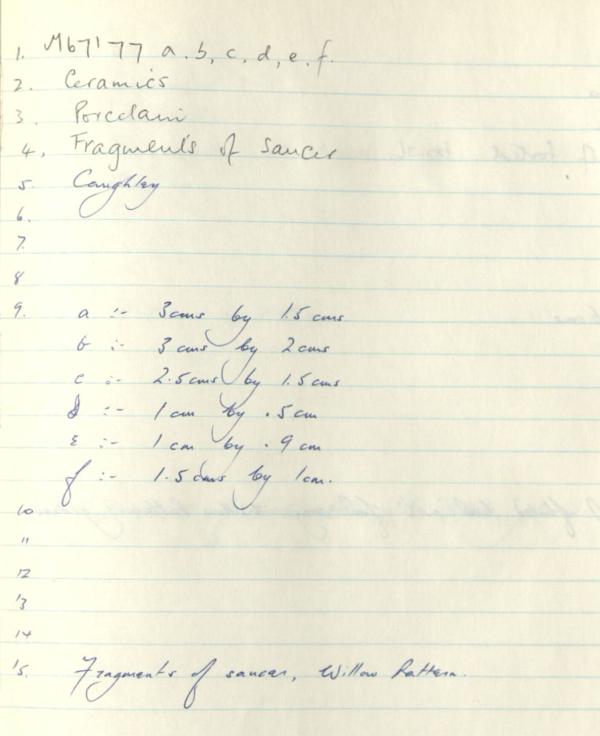 1. M67'77 a.b, c, d, e. f.
2. Ceramics
3. Porcelain
4. Fragments of saucer
5. Caughley
6.
7.
8
9. a :- 3cms by 1.5 cms
b :- 3 cms by 2 cms
c :- 2.5cms by 1.5 cms
d :- 1 cm by .5 cm
e :- 1 cm by .9 cm
f :- 1.5 cms by 1cm.
10
11
12
13
14
15. Fragments of saucer, Willow Pattern.